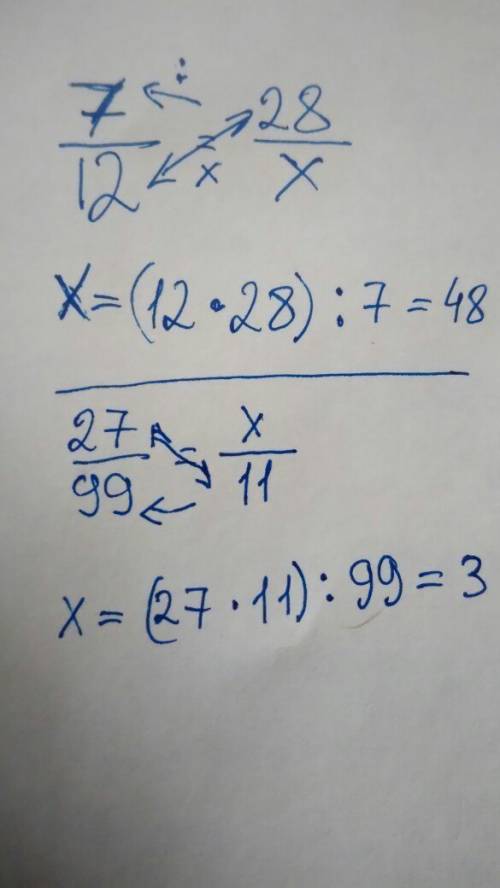 7/12 = 28/x
: x
x = (12 · 28) : 7 = 48
27/99 = x/11
x = (27 · 11) : 99 = 3